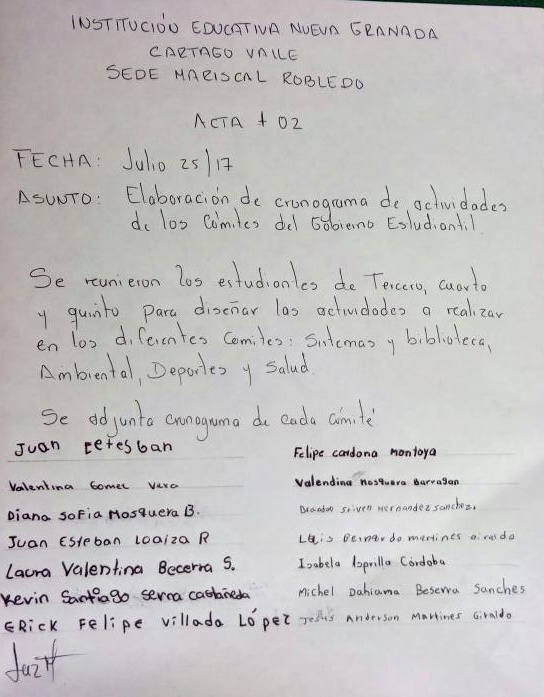 INSTITUCIÓN EDUCATIVA NUEVA GRANADA
CARTAGO VALLE
SEDE MARISCAL ROBLEDO
ACTA # 02
FECHA: Julio 25/17
ASUNTO: Elaboración de cronograma de actividades
de los Cómites del Gobierno Estudiantil
Se reunieron los estudiantes de Tercero, cuarto
y quinto para diseñar las actividades a realizar
en los diferentes Comites: Sistemas y biblioteca,
Ambiental, Deportes y Salud.
Se adjunta cronograma de cada cómité
Juan
Felipe cardona montoya
Valentina Gomez Vera
Valendina mosquera Barragan
Diana SoFia Mosquera B.
Brandon Stiven Hernandez sanchez.
Juan Esteban Loaiza R
Luis Bernardo martines
Laura Valentina Becerra S.
Isabela Asprilla Córdoba
Kevin Santiago serna castañeda
Michel Dahiama Beserra Sanches
ERick Felipe Villada López
Jesús Anderson Martines Giraldo